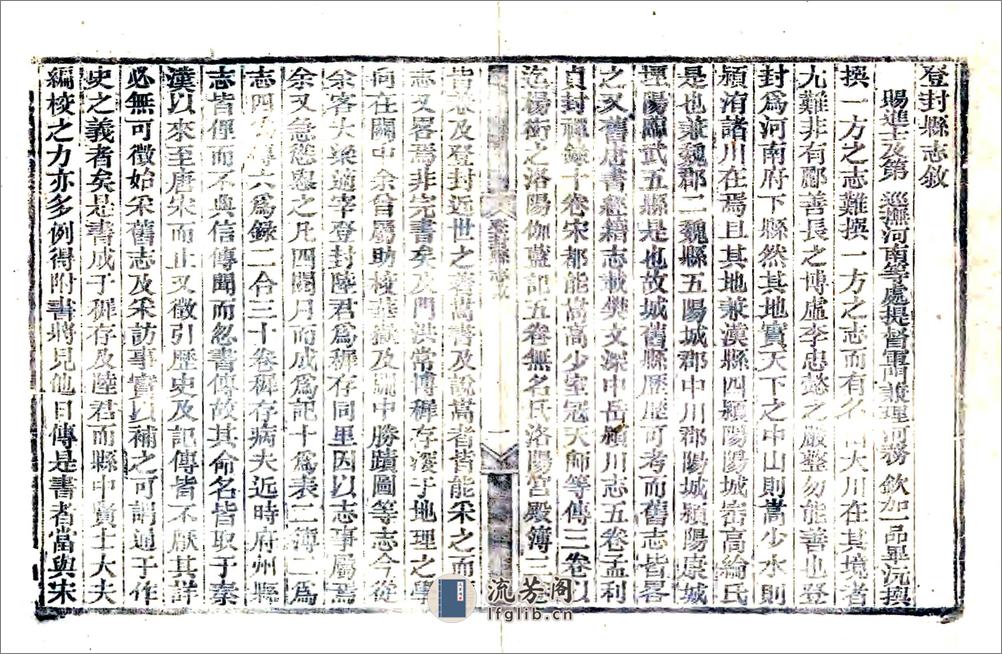 登封縣志敘
賜進士及第 巡撫河南等處提督軍門兼理河務 欽加一品畢沅撰
撰一方之志難撰一方之志而有名山大川在其境者
尤難非有酈善長之博盧李忠懿之嚴整勿能善也登
封爲河南府下縣然其地實天下之中山則嵩少水則
潁洧諸川在焉且其地兼漢縣四潁陽陽城密高綸氏
是也兼魏郡二魏縣五陽城郡中川郡陽城潁陽康城
堙陽臨武五縣是也故城舊縣歷歷可考而舊志皆畧
之又舊唐書經籍志載樊文深中岳潁川志五卷孟利
貞封禪錄十卷宋都能嵩高少室寇天師等傳三卷以
迄楊衒之洛陽伽藍記五卷無名氏洛陽宮殿簿三
皆志及登封近世之著嵩書及說嵩者皆能采之而
志又畧焉非完書矣及門洪常博稚存深于地理之學
向在關中余曾屬助校華嶽及關中勝蹟圖等志今從
余客大梁適宰登封陸君爲稚存同里因以志事屬焉
余又急慫恿之凡四閱月而成爲記十爲表二簿一
志四 傳六爲錄二合三十卷稚存病夫近時府州縣
志皆俚而不典信傳聞而忽書傳故其命名皆取于秦
漢以來至唐宋而止又徵引歷史及記傳皆不厭其詳
必無可徵始采舊志及采訪事實以補之可謂通于作
史之義者矣是書成于稚存及陸君而縣中賢士大夫
編校之力亦多例得附書將見他日傳是書者當與宋
登封縣志敘
一
流芳阁
lfglib.cn